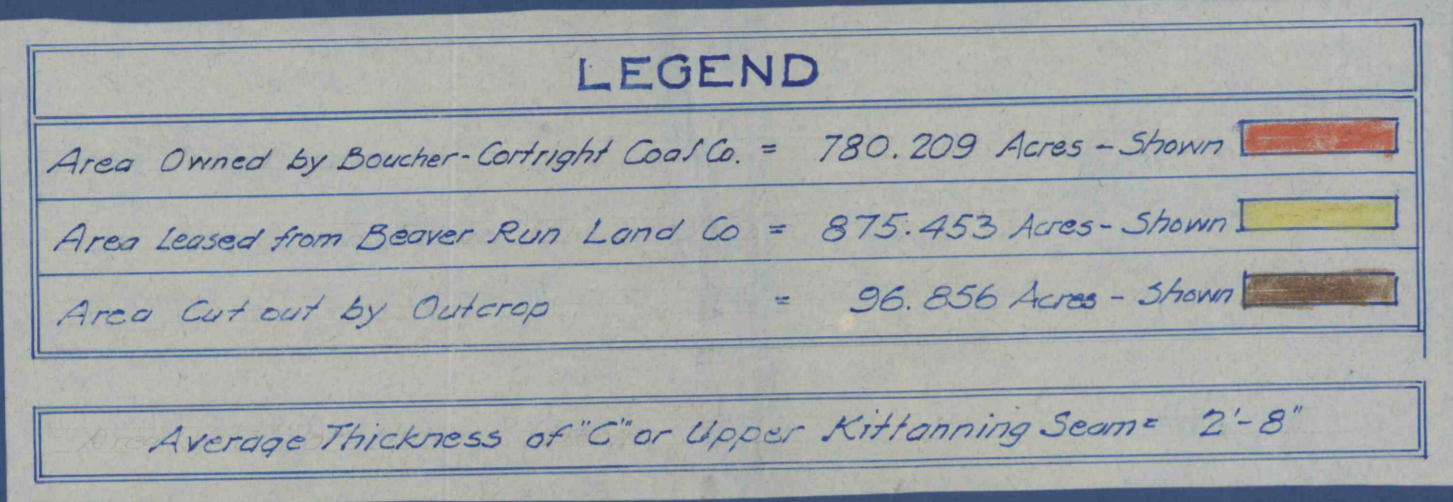 LEGEND
Area Owned by Boucher-Cortright Coal Co. = 780.209 Acres - Shown
Area Leased from Beaver Run Land Co = 875.453 Acres - Shown
Area Cut out by Outcrop = 96.856 Acres - Shown
Average Thickness of "C" or Upper Kittanning Seam = 2'-8"